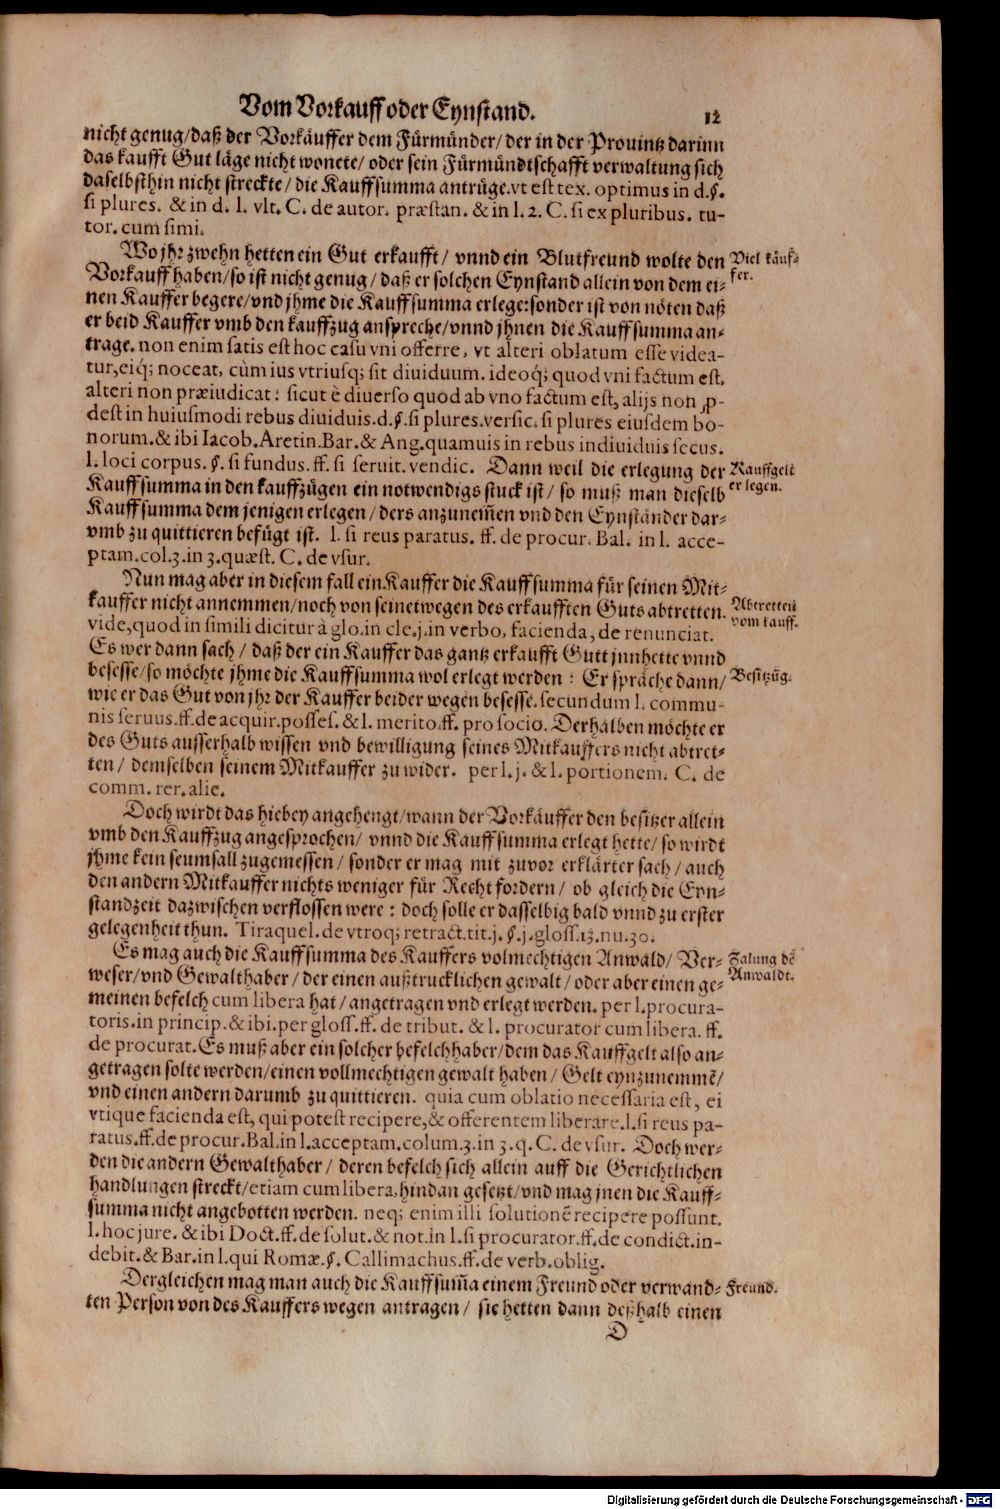 Vom Vorkauff oder Eynstand. 12
nicht genug/ daß der Vorkäuffer dem Fürmünder/ der in der Prouintz darinn
das kaufft Gut läge nicht wonete/ oder sein Fürmündtschafft verwaltung sich
daselbsthin nicht streckte/ die Kauffsumma antrüge. vt est tex. optimus in d. §.
si plures. & in d. l. vlt. C. de autor. præstan. & in l. 2. C. si ex pluribus. tu-
tor. cum simi.
Wo jhr zwehn hetten ein Gut erkaufft/ vnnd ein Blutfreund wolte den
Viel käuf-
fer.
Vorkauff haben/ so ist nicht genug/ daß er solchen Eynstand allein von dem ei-
nen Kauffer begere/ vnd jhme die Kauffsumma erlege: sonder ist von nöten daß
er beid Kauffer vmb den kauffzug anspreche/ vnnd jhnen die Kauffsumma an-
trage. non enim satis est hoc casu vni offerre, vt alteri oblatum esse videa-
tur, eiq́; noceat, cùm ius vtriusq; sit diuiduum. ideoq́; quod vni factum est,
alteri non præiudicat: sicut è diuerso quod ab vno factum est, alijs non ꝓ-
dest in huiusmodi rebus diuiduis. d. §. si plures. versic. si plures eiusdem bo-
norum. & ibi Iacob. Aretin. Bar. & Ang. quamuis in rebus indiuiduis secus.
l. loci corpus. §. si fundus. ff. si seruit. vendic. Dann weil die erlegung der
Kauffgelt
erlegen.
Kauffsumma in den kauffzügen ein notwendigs stuck ist/ so muß man dieselb
Kauffsumma dem jenigen erlegen/ ders anzunem̃en vnd den Eynständer dar-
vmb zu quittieren befügt ist. l. si reus paratus. ff. de procur. Bal. in l. acce-
ptam. col. 3. in 3. quæst. C. de vsur.
Nun mag aber in diesem fall ein Kauffer die Kauffsumma für seinen Mit-
kauffer nicht annemmen/ noch von seinetwegen des erkaufften Guts abtretten.
Abtretten
vom kauff.
vide, quod in simili dicitur à glo. in cle. j. in verbo, facienda, de renunciat.
Es wer dann sach/ daß der ein Kauffer das gantz erkaufft Gutt jnnhette vnnd
besesse/ so möchte jhme die Kauffsumma wol erlegt werden: Er spräche dann/
Besitzũg.
wie er das Gut von jhr der Kauffer beider wegen besesse. secundum l. commu-
nis seruus. ff. de acquir. posses. & l. merito. ff. pro socio. Derhalben möchte er
des Guts ausserhalb wissen vnd bewilligung seines Mitkauffers nicht abtret-
ten/ demselben seinem Mitkauffer zu wider. per l. j. & l. portionem. C. de
comm. rer. alie.
Doch wirdt das hiebey angehengt/ wann der Vorkäuffer den besitzer allein
vmb den Kauffzug angesprochen/ vnnd die Kauffsumma erlegt hette/ so wirdt
jhme kein seumsall zugemessen/ sonder er mag mit zuvor erklärter sach/ auch
den andern Mitkauffer nichts weniger für Recht fordern/ ob gleich die Eyn-
standzeit dazwischen verflossen were: doch solle er dasselbig bald vnnd zu erster
gelegenheit thun. Tiraquel. de vtroq; retract. tit. j. §. j. gloss. 13. nu. 30.
Es mag auch die Kauffsumma des Kauffers volmechtigen Anwald/ Ver-
Zalung dẽ
Anwaldt.
weser/ vnd Gewalthaber/ der einen außtrucklichen gewalt/ oder aber einen ge-
meinen befelch cum libera hat/ angetragen vnd erlegt werden. per l. procura-
toris. in princip. & ibi. per gloss. ff. de tribut. & l. procurator cum libera. ff.
de procurat. Es muß aber ein solcher befelchhaber/ dem das Kauffgelt also an-
getragen solte werden/ einen vollmechtigen gewalt haben/ Gelt eynzunemmẽ/
vnd einen andern darumb zu quittieren. quia cum oblatio necessaria est, ei
vtique facienda est, qui potest recipere, & offerentem liberare. l. si reus pa-
ratus. ff. de procur. Bal. in l. acceptam. colum. 3. in 3. q. C. de vsur. Doch wer-
den die andern Gewalthaber/ deren befelch sich allein auff die Gerichtlichen
handlungen streckt/ etiam cum libera, hindan gesetzt/ vnd mag jnen die Kauff-
summa nicht angebotten werden. neq; enim illi solutionẽ recipere possunt.
l. hoc jure. & ibi Doct. ff. de solut. & not. in l. si procurator. ff. de condict. in-
debit. & Bar. in l. qui Romæ. §. Callimachus. ff. de verb. oblig.
Dergleichen mag man auch die Kauffsum̃a einem Freund oder verwand-
Freund.
ten Person von des Kauffers wegen antragen/ sie hetten dann deßhalb einen
D
Digitalisierung gefördert durch die Deutsche Forschungsgemeinschaft - DFG